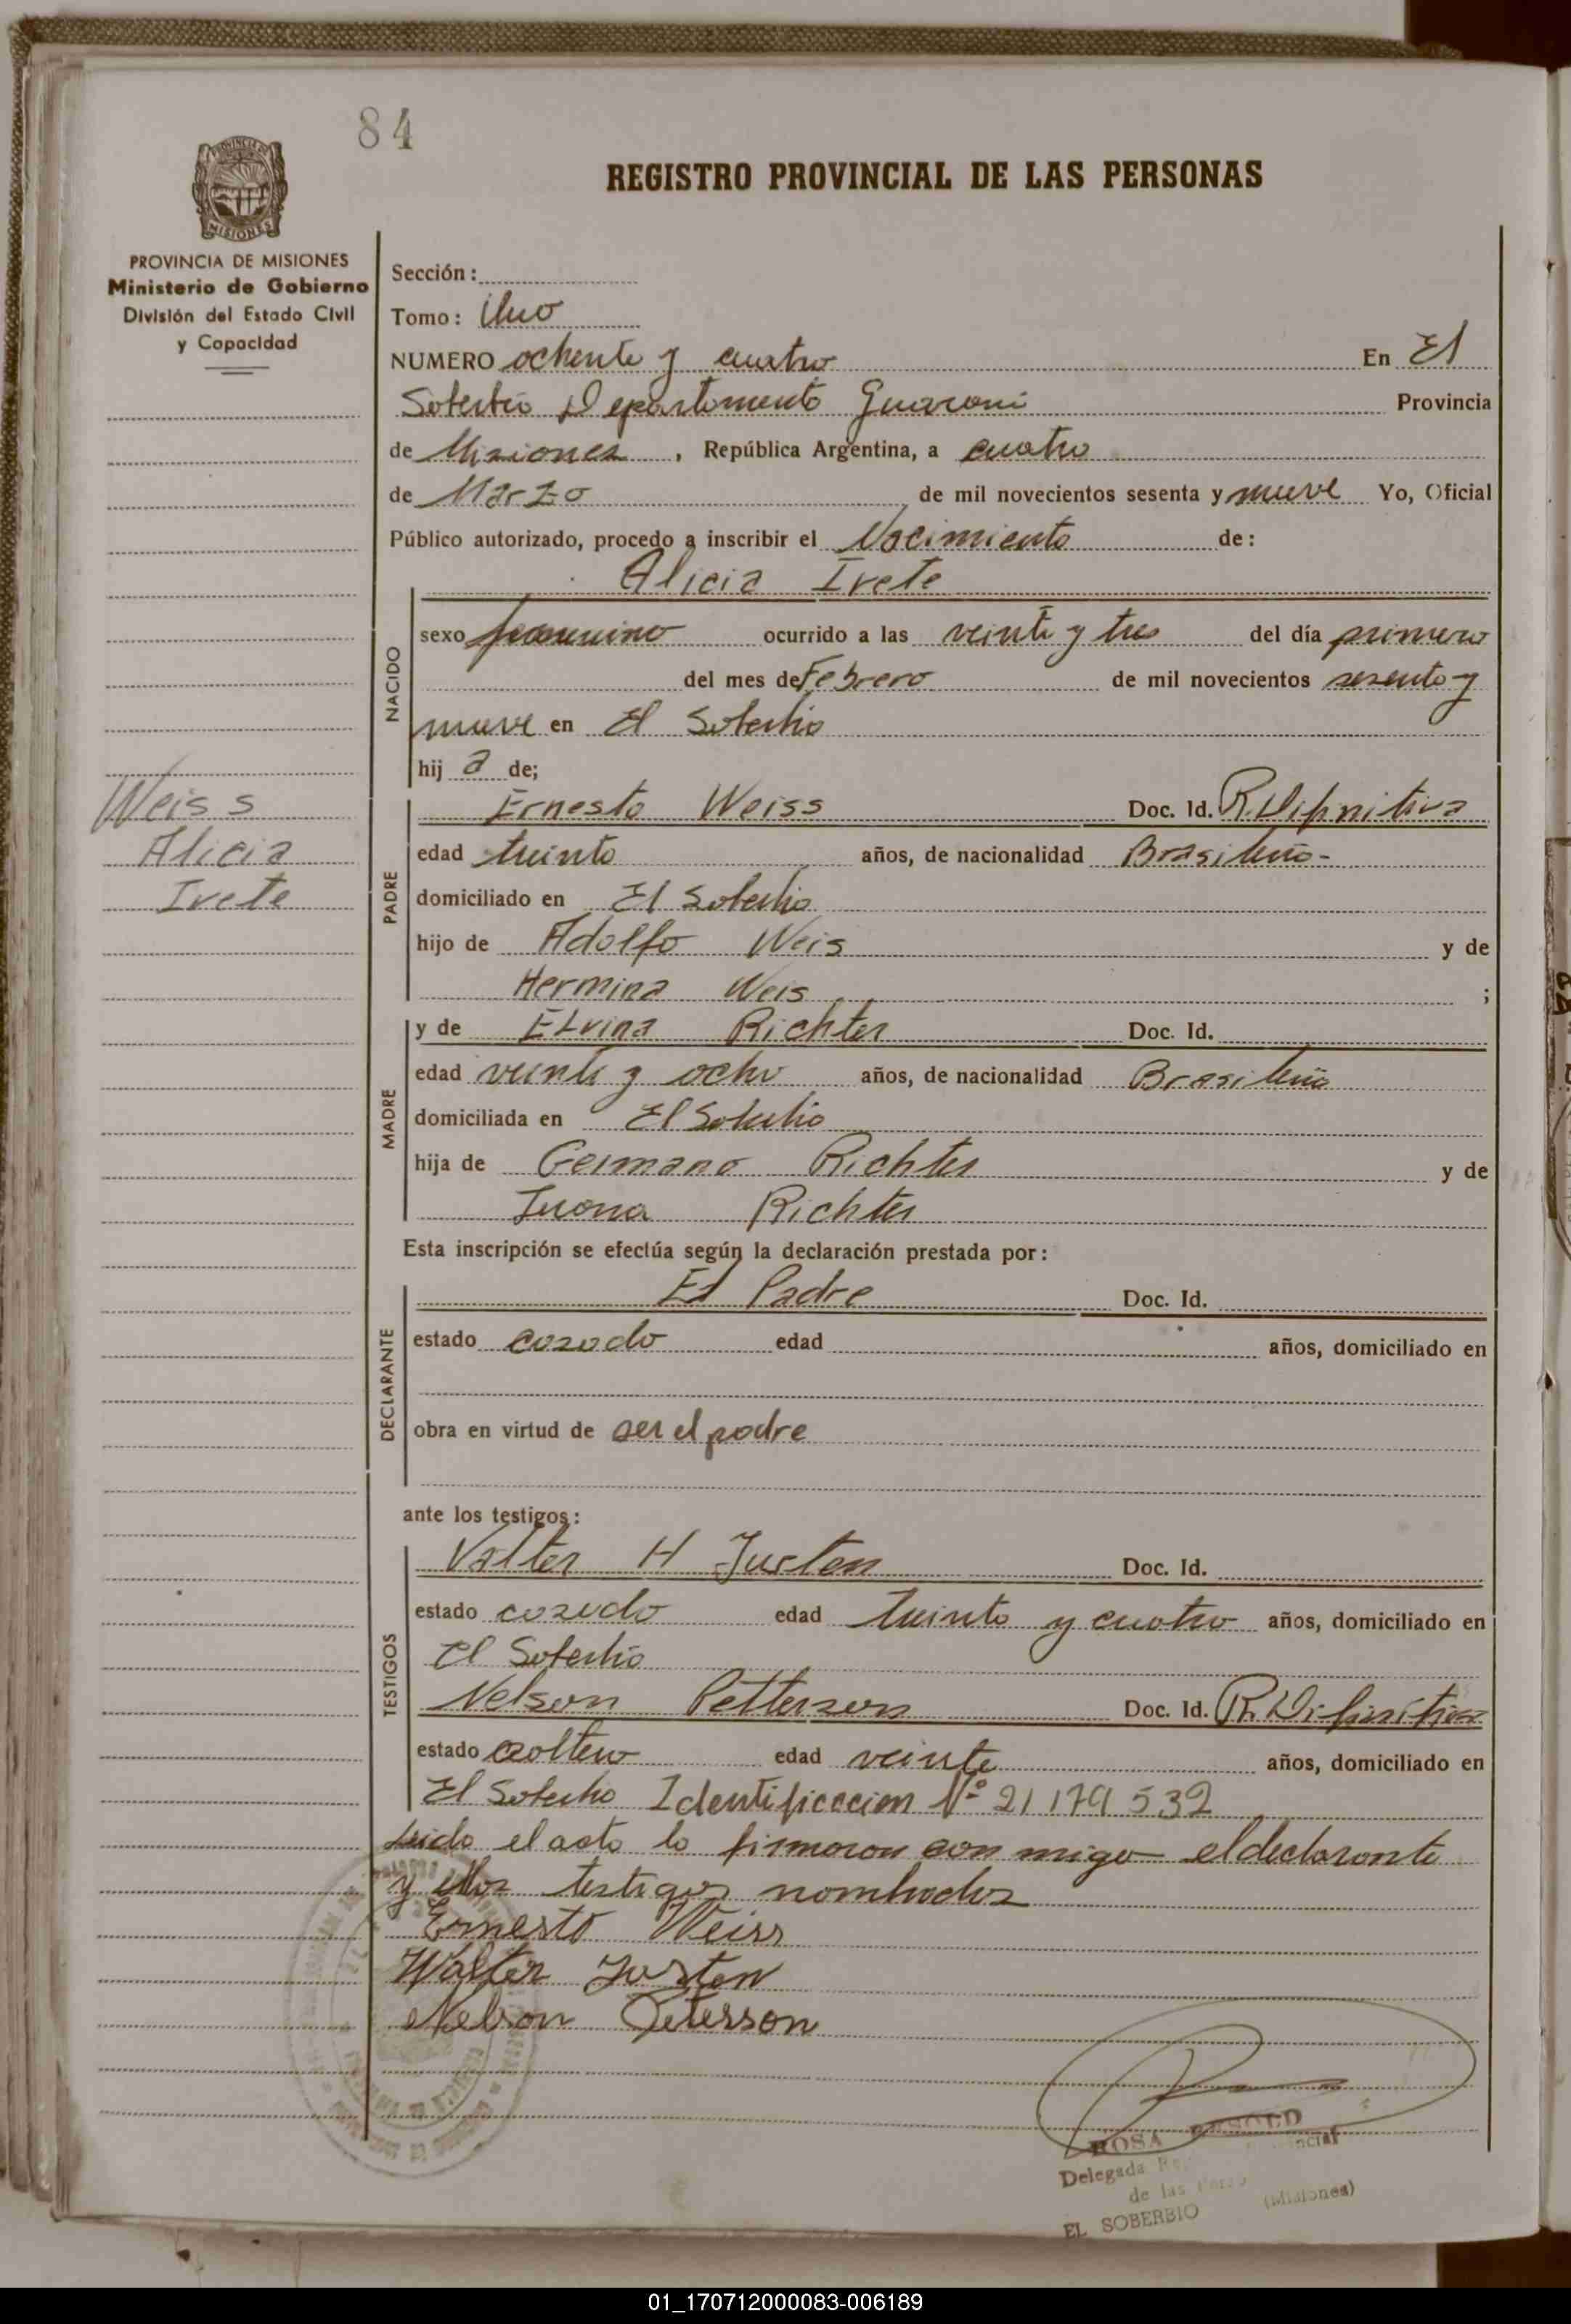 84
REGISTRO PROVINCIAL DE LAS PERSONAS
PROVINCIA DE
MISIONES
PROVINCIA DE MISIONES
Ministerio de Gobierno
División del Estado Civil
y Capacidad
Weiss
Alicia
Ivete
Sección:
Tomo: Uno
NUMERO ochenta y cuatro En El
Soberbio Departamento Guarani Provincia
de Misiones, República Argentina, a cuatro
de Marzo de mil novecientos sesenta y nueve Yo, Oficial
Público autorizado, procedo a inscribir el Nacimiento de:
Alicia Ivete
NACIDO
sexo femenino ocurrido a las veinte y tres del día primero
del mes de Febrero de mil novecientos sesenta y
nueve en El Soberbio
hij a de;
PADRE
Ernesto Weiss Doc. Id. R. Difinitiva
edad treinta años, de nacionalidad Brasileño-
domiciliado en El Soberbio
hijo de Adolfo Weis y de
Hermina Weis ;
MADRE
y de Elvina Richter Doc. Id.
edad veinte y ocho años, de nacionalidad Brasileña
domiciliada en El Soberbio
hija de Germano Richter y de
Juana Richter
Esta inscripción se efectúa según la declaración prestada por:
DECLARANTE
El Padre Doc. Id.
estado casado edad años, domiciliado en
obra en virtud de ser el padre
ante los testigos:
TESTIGOS
Valter H Justen Doc. Id.
estado casado edad treinta y cuatro años, domiciliado en
El Soberbio
Nelson Petterson Doc. Id. R. Difinitiva
estado soltero edad veinte años, domiciliado en
El Soberbio Identificacion Nº 21 179 532
Leido el acta lo firmaron con migo el declarante
y los testigos nombrados
Ernesto Weiss
Walter Justen
Nelson Petersson
ROSA
Delegada
de las
(Misiones)
EL SOBERBIO
01_170712000083-006189